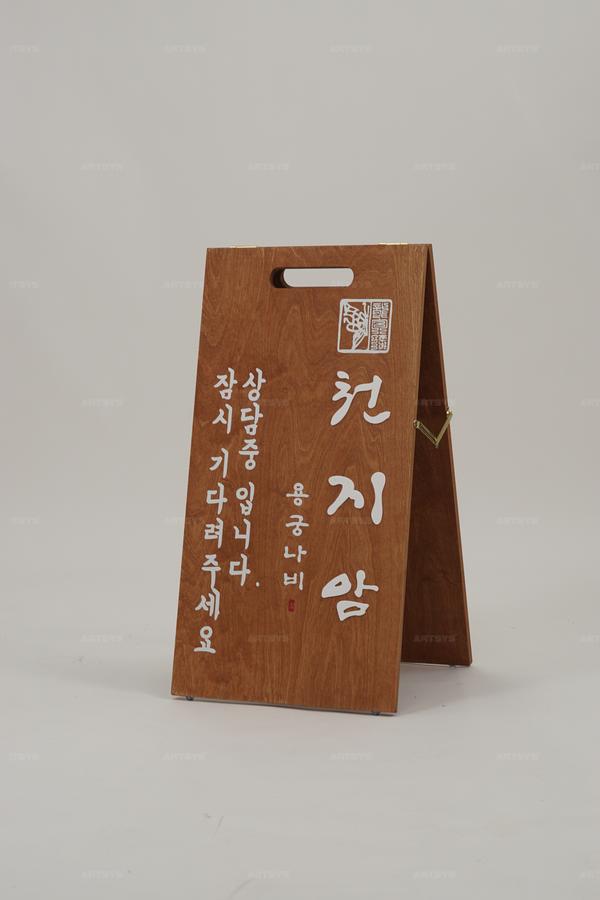 천지암
용궁나비
상담중 입니다.
잠시 기다려주세요
ARTSYS